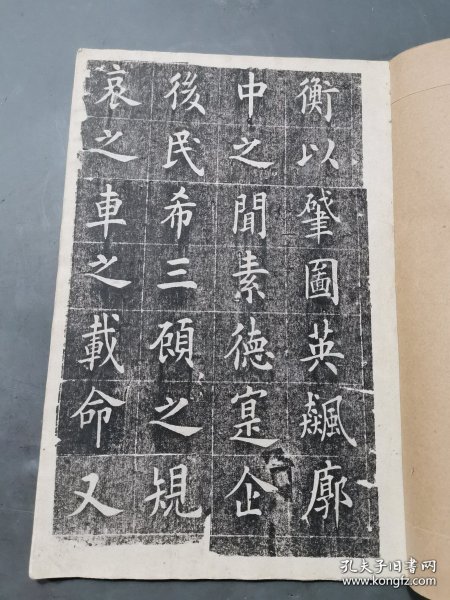 衡以肇啚英飆廓
中之聞素德寔企
後民希三顧之規
哀之車之載命又
孔夫子旧书网
www.kongfz.com